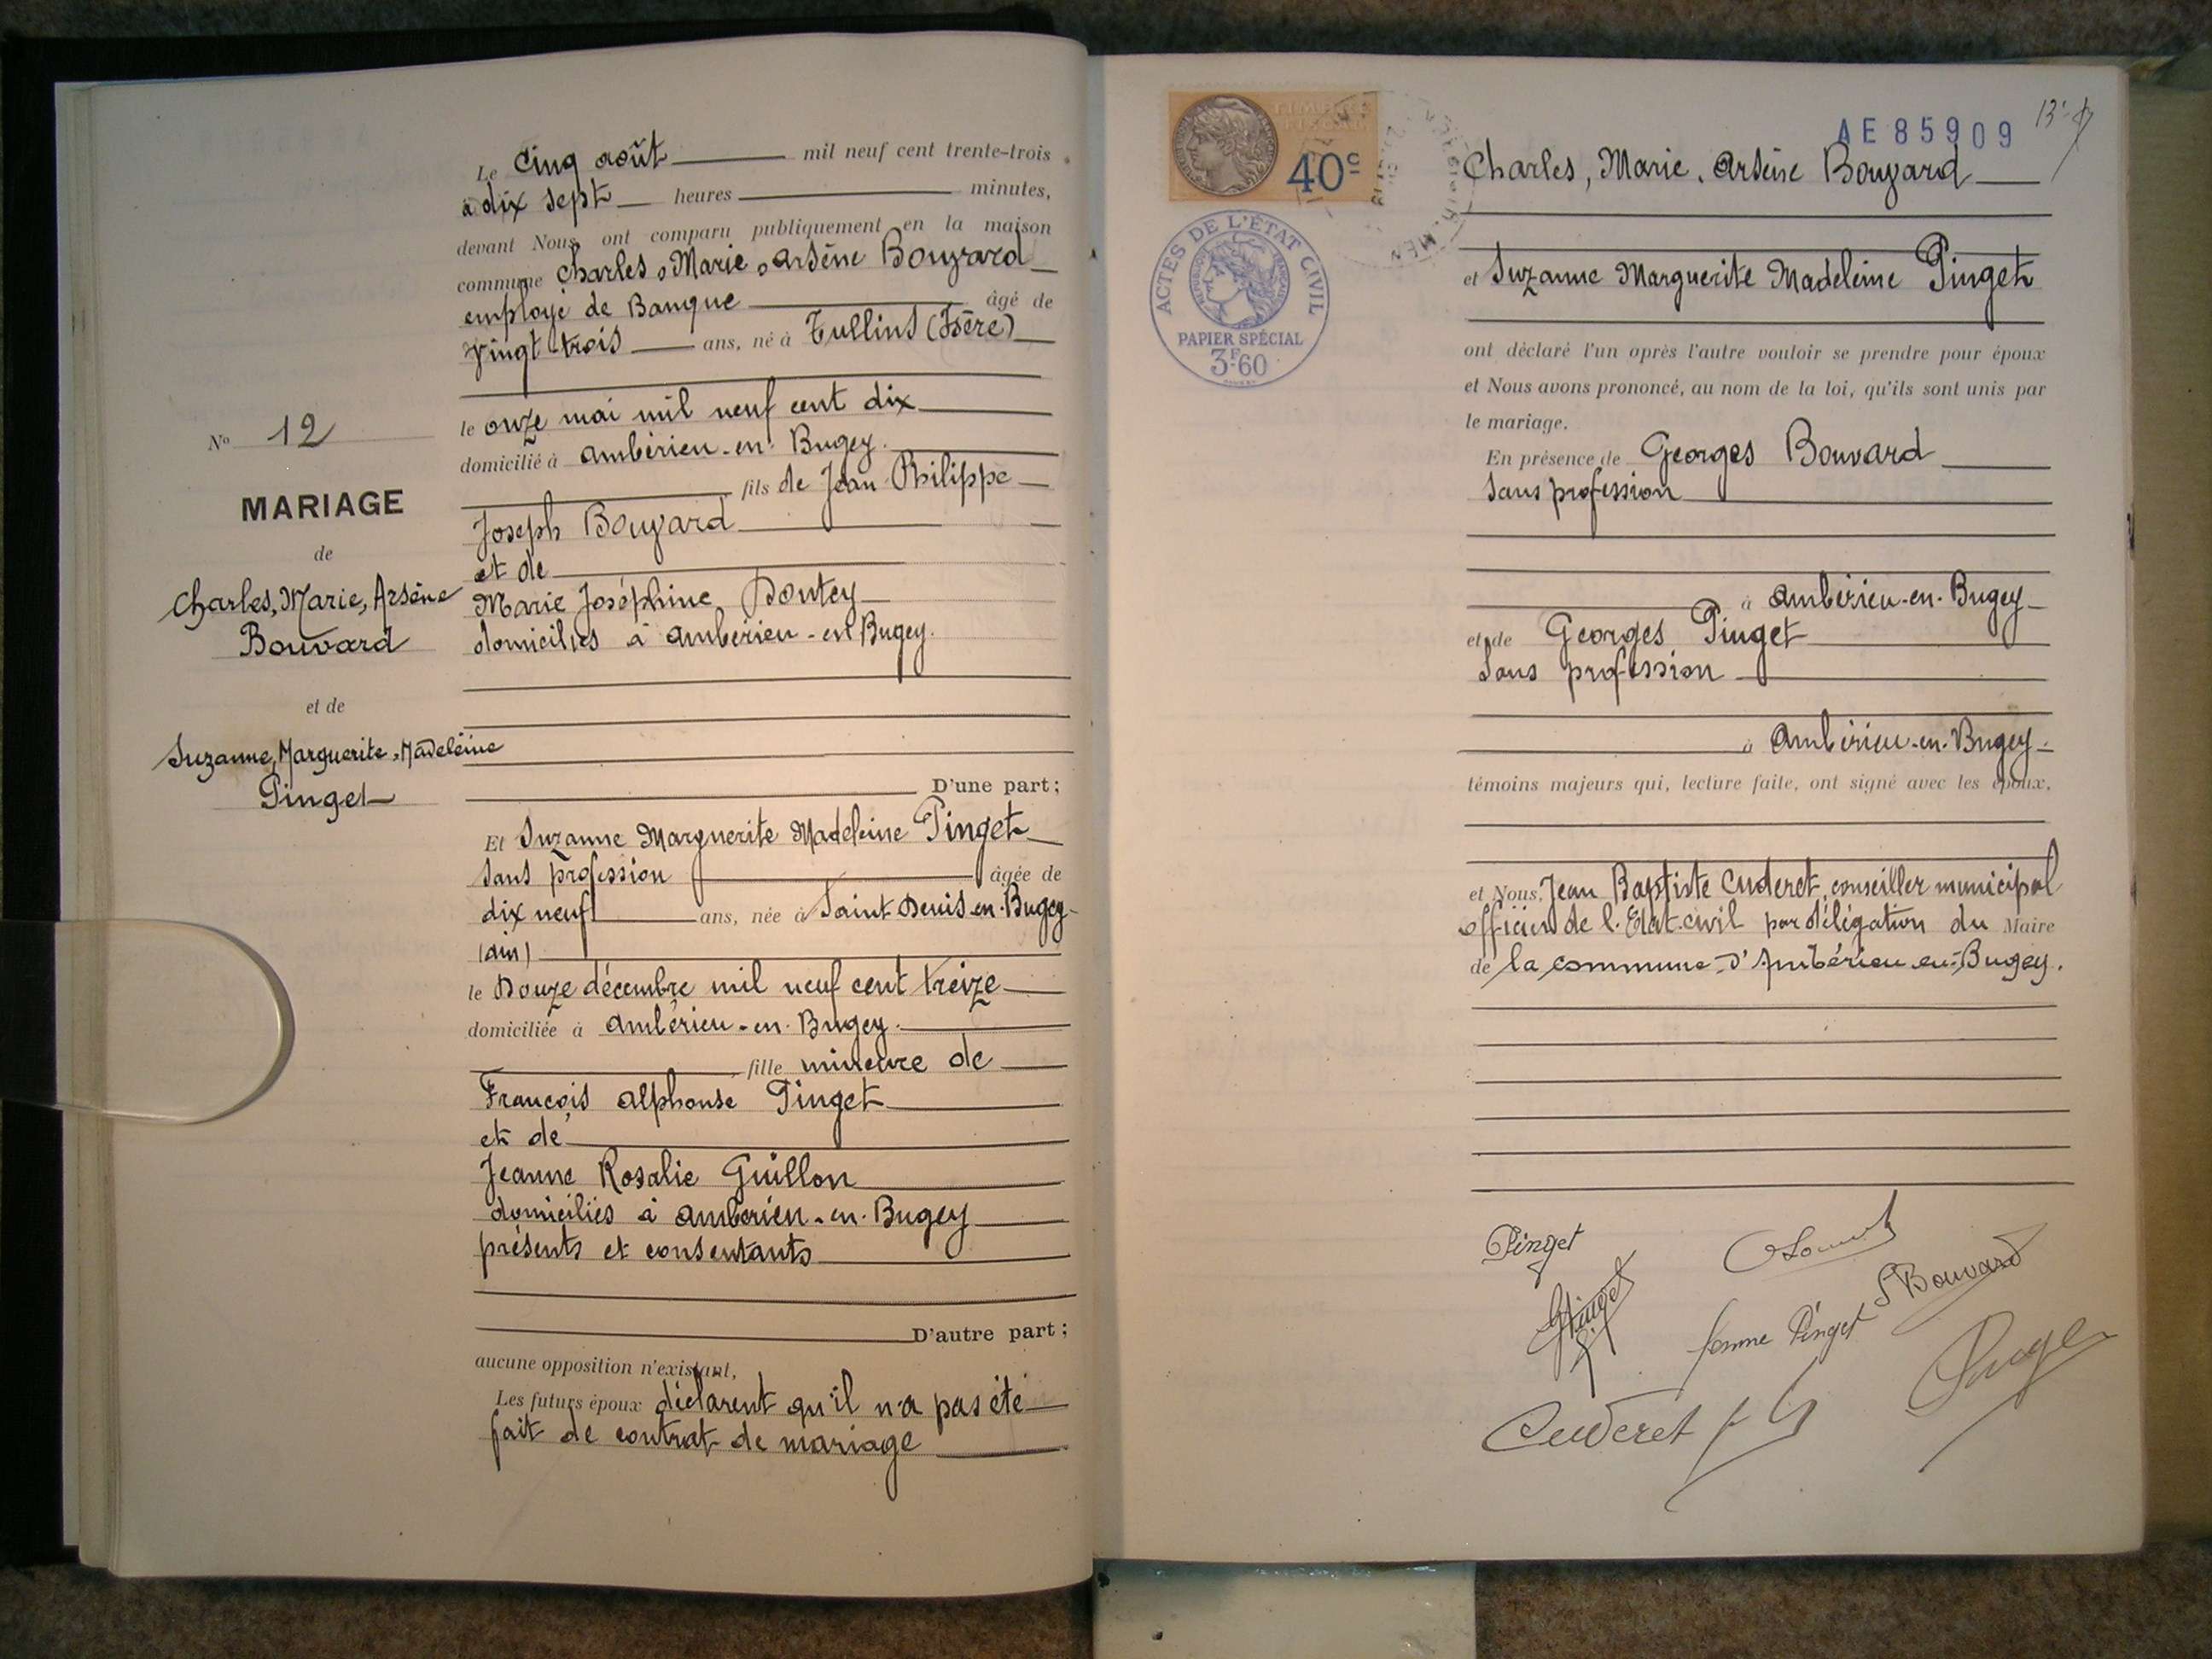 Le Cinq août mil neuf cent trente-trois
à dix sept heures minutes,
devant Nous, ont comparu publiquement en la maison
commune Charles, Marie, Arsène Bouvard
employé de Banque âgé de
vingt-trois ans, né à Tullins (Isère)
le onze mai mil neuf cent dix
domicilié à Ambérieu-en-Bugey.
fils de Jean Philippe
Joseph Bouvard
et de
Marie Joséphine
domiciliés à Ambérieu-en Bugey.
D'une part;
Et Suzanne Marguerite Madeleine Pinget
sans profession âgée de
dix neuf ans, née à Saint-Denis-en-Bugey
(ain)
le Douze décembre mil neuf cent treize
domiciliée à Ambérieu-en-Bugey.
fille mineure de
François Alphonse Pinget
et de
Jeanne Rosalie Guillon
domiciliés à Ambérieu-en-Bugey
présents et consentants
D'autre part;
aucune opposition n'existant,
Les futurs époux déclarent qu'il n'a pas été
fait de contrat de mariage
No 12
MARIAGE
de
Charles, Marie, Arsène
Bouvard
et de
Suzanne, Marguerite, Madeleine
Pinget
TIMBRE
FISCAL
40c
ACTES DE L'ÉTAT CIVIL
PAPIER SPÉCIAL
3F60
AE 85909
Charles, Marie, Arsène Bouvard
et Suzanne Marguerite Madeleine Pinget
ont déclaré l'un après l'autre vouloir se prendre pour époux
et Nous avons prononcé, au nom de la loi, qu'ils sont unis par
le mariage.
En présence de Georges Bouvard
sans profession
à Ambérieu-en-Bugey
et de Georges Pinget
sans profession
à Ambérieu-en-Bugey
témoins majeurs qui, lecture faite, ont signé avec les époux,
et Nous, Jean Baptiste Cuderet, conseiller municipal
officier de l'Etat-civil par délégation du Maire
de la commune d'Ambérieu-en-Bugey.
Pinget
GPinget
S Bouvard
femme Pinget
Cuderet